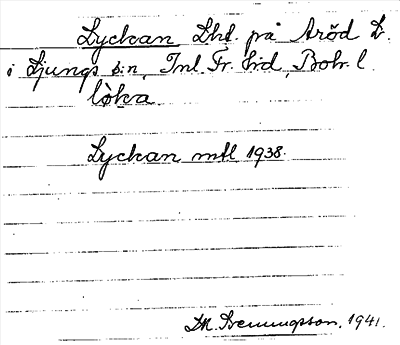 Lyckan Lht. på Aröd L.
i Ljungs s:n, Inl. Fr. hd, Boh. l.
lò̀ka
Lyckan mtl 1938.
D.M. Svenungsson. 1941.